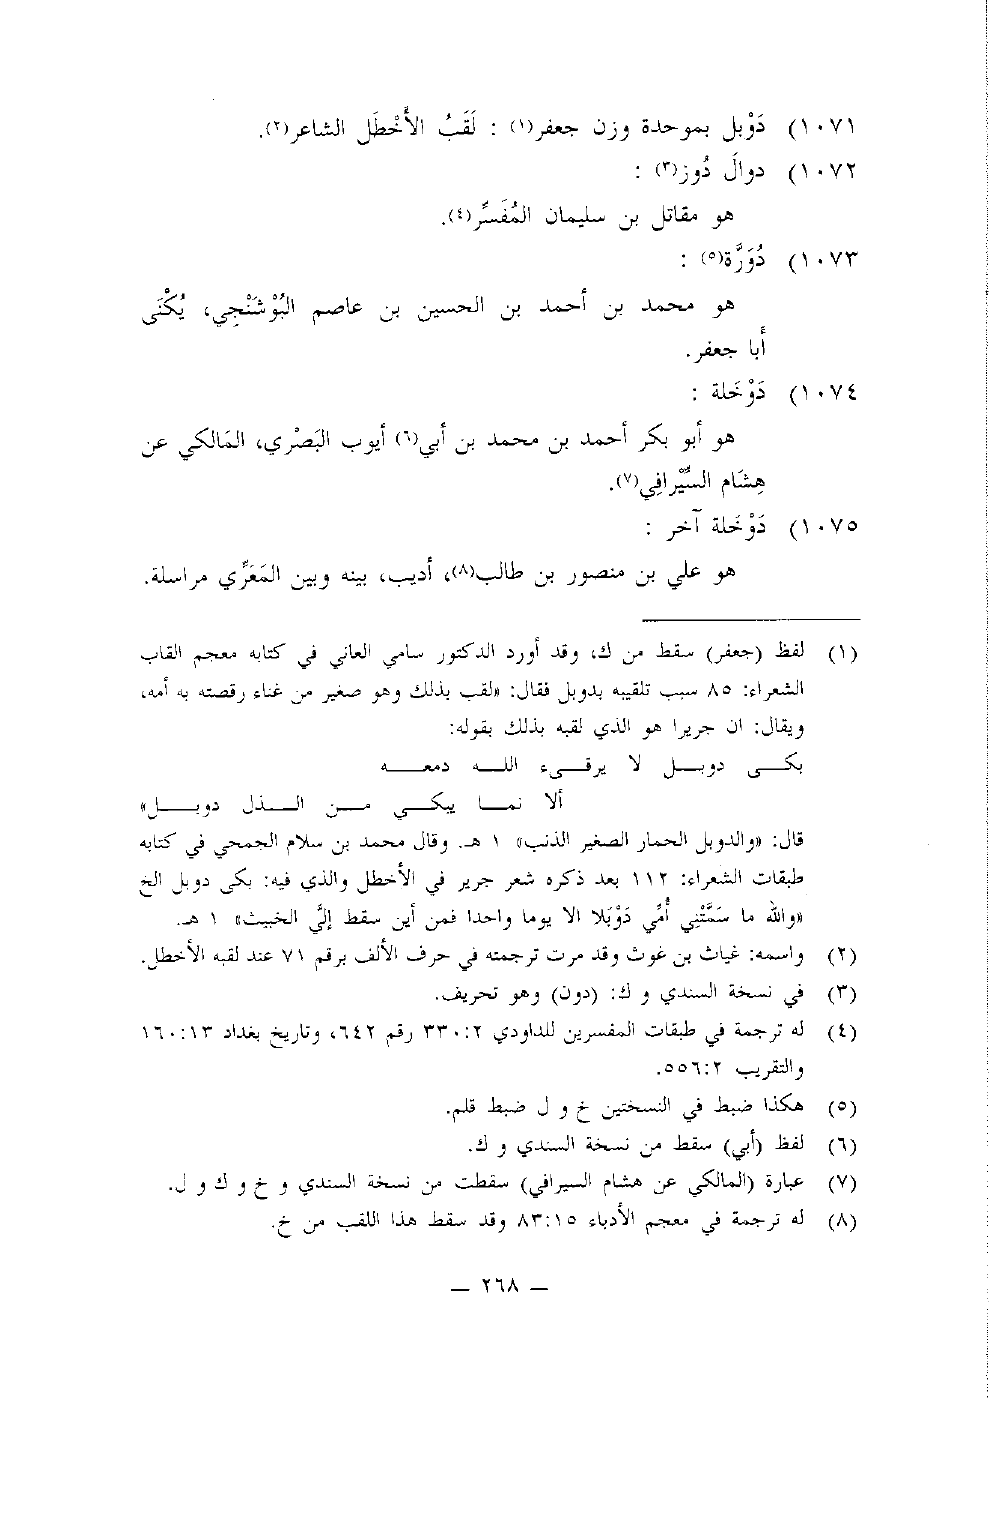 ١٠٧١) دَوْبل بموحدة وزن جعفر(١) : لَقَبُ الأَخْطَل الشاعر(٢).
١٠٧٢) دوالَ دُوز(٣) :
هو مقاتل بن سليمان المُفَسِّر(٤).
١٠٧٣) دُوَرَّة(٥) :
هو محمد بن أحمد بن الحسين بن عاصم البُوْشَنْجِي، يُكْنَى
أبا جعفر.
١٠٧٤) دَوْخَلة :
هو أبو بكر أحمد بن محمد بن أبي(٦) أيوب البَصْري، المَالكي عن
هِشَام السِّيْرافِي(٧).
١٠٧٥) دَوْخَلة آخر :
هو علي بن منصور بن طالب(٨)، أديب، بينه وبين المَعَرِّي مراسلة.
(١) لفظ (جعفر) سقط من ك، وقد أورد الدكتور سامي العاني في كتابه معجم القاب
الشعراء: ٨٥ سبب تلقيبه بدوبل فقال: «لقب بذلك وهو صغير من غناء رقصته به أمه،
ويقال: ان جريرا هو الذي لقبه بذلك بقوله:
بكـــى دوبـــل لا يرقـــىء اللـــه دمعـــه
ألا نمـــا يبكـــي مـــن الـــذل دوبـــل»
قال: «والدوبل الحمار الصغير الذنب» ١ هـ. وقال محمد بن سلام الجمحي في كتابه
طبقات الشعراء: ١١٢ بعد ذكره شعر جرير في الأخطل والذي فيه: بكى دوبل الخ
«والله ما سَمَّتْنِي أُمِّي دَوْبَلا الا يوما واحدا فمن أين سقط إليَّ الخبيث» ١ هـ.
(٢) واسمه: غياث بن غوث وقد مرت ترجمته في حرف الألف برقم ٧١ عند لقبه الأخطل.
(٣) في نسخة السندي و ك: (دون) وهو تحريف.
(٤) له ترجمة في طبقات المفسرين للداودي ٢:٣٣٠ رقم ٦٤٢، وتاريخ بغداد ١٣:١٦٠
والتقريب ٢:٥٥٦.
(٥) هكذا ضبط في النسختين خ و ل ضبط قلم.
(٦) لفظ (أبي) سقط من نسخة السندي و ك.
(٧) عبارة (المالكي عن هشام السيرافي) سقطت من نسخة السندي و خ و ك و ل.
(٨) له ترجمة في معجم الأدباء ١٥:٨٣ وقد سقط هذا اللقب من خ.
— ٢٦٨ —